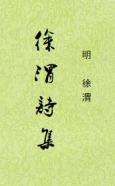 明 徐渭
徐渭詩集